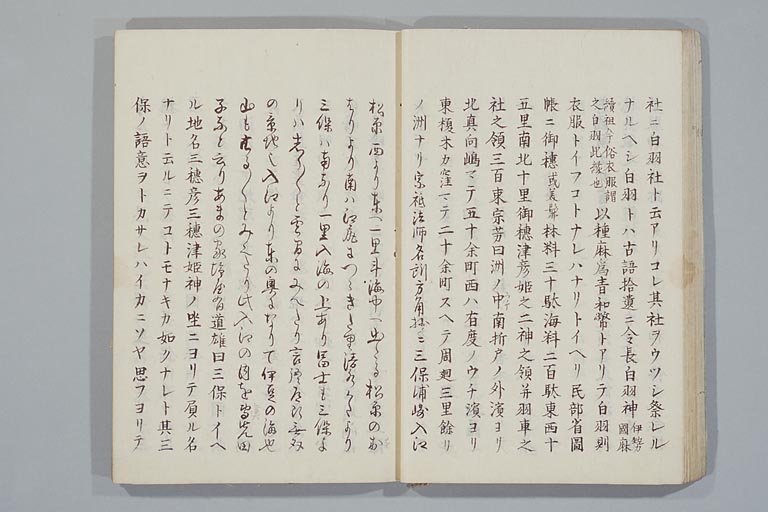 社ニ白羽社ト云アリコレ其社ヲウツシ祭レル
ナルヘシ白羽トハ古語拾遺ニ令長白羽神伊勢國麻
續祖今俗衣服謂之白羽此縁也以種麻為青和幣トアリテ白羽則
衣服トイフコトナレハナリトイヘリ民部省圖
帳ニ御穂或美髴林料三十駄海料二百駄東西十
五里南北十里御穂津彦姫之二神之領并羽車之
社之領三百東宗苅曰洲ノ中南折戸ノ外濱ヨリ
北真向嶋マテ五十余町西ハ有度ノウチ濱ヨリ
東榎木カ窪マテ二十余町スヘテ周廻三里餘リ
ノ洲ナリ宗祇法師名訓方角抄ニ三保浦崎入江
松原西より東へ一里斗海中へ出たる松原のお
はりより南ハ江尻につゝきたり清見くたより
三保ハ南なり一里入海の上あり冨士も三保よ
りハ
の京地し入江より東の奥にあたりて伊豆の海也
山もはる〱とみへたり此入江の内を
子ふと云りあまの家塩屋有道雄曰三保トイヘ
ル地名三穂彦三穂津姫神ノ坐ニヨリテ負ル名
ナリト云ルニテコトモナキカ如クナレト其三
保ノ語意ヲトカサレハイカニソヤ思フヨリテ